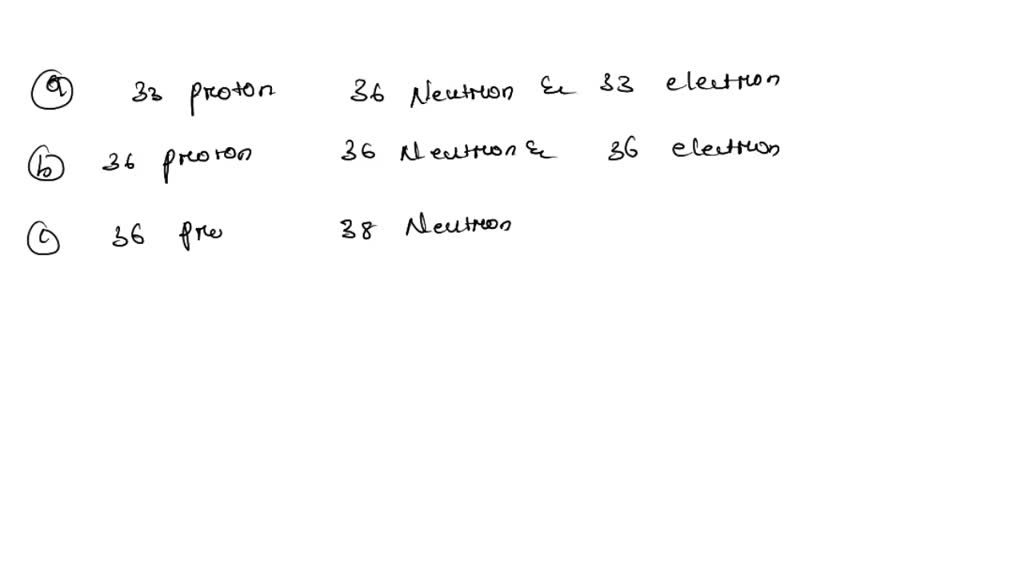 a 33 proton 36 Neutron & 33 electron
b 36 proton 36 Neutron & 36 electron
c 36 pro 38 Neutron